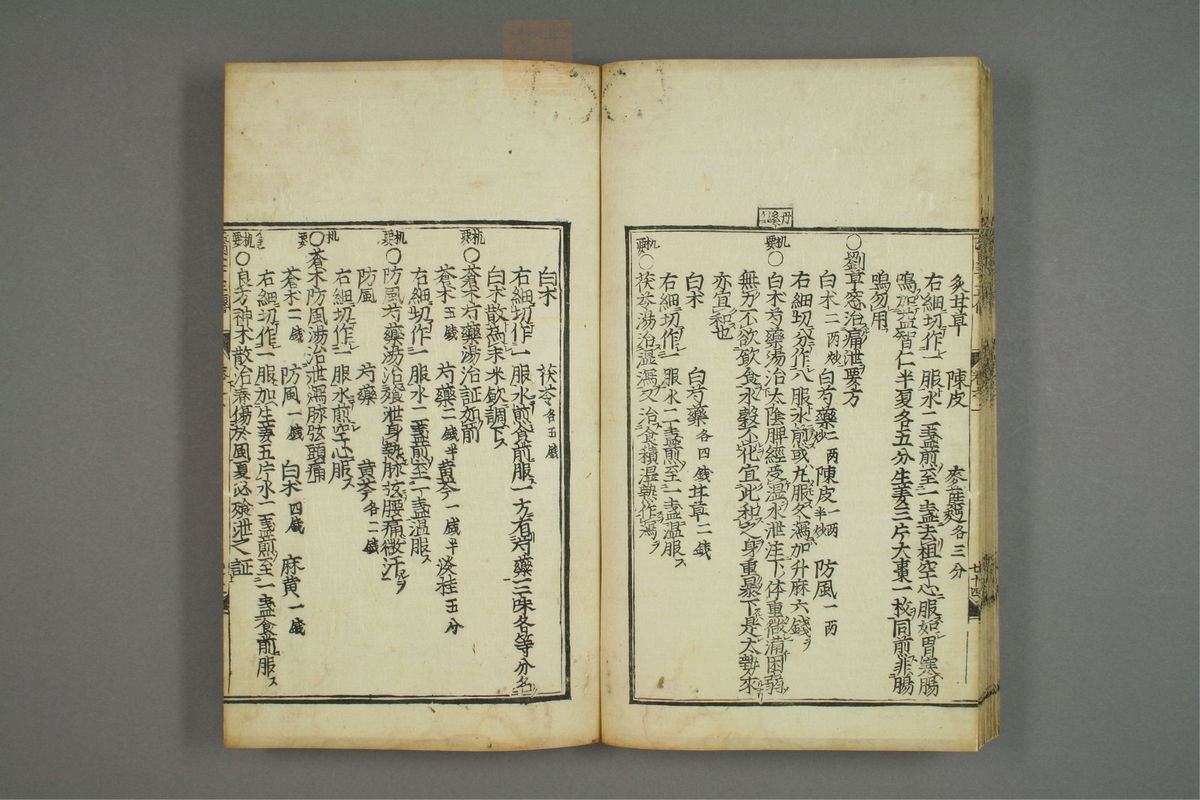 炙甘草　陳皮　麥蘖麪各三分
右細切作一服水二盞煎至一盞去柤空心服如胃寒腸
鳴加益智仁半夏各五分生姜三片大棗一枚同煎非腸
鳴勿用
〇劉草窓治痛泄要方
白朮二両炒白芍藥二両炒陳皮一両半炒防風一両
右細切分作八服水煎或丸服久瀉加升麻六錢
机要〇白朮芍藥湯治太陰脾經受湿水泄注下体重微滿困弱
無力不欲飲食水穀不化宜此和之身重暴下是大勢來
亦宜和也
白朮　白芍藥各四戔甘草二戔
右細切作一服水二盞煎至一盞温服
机要〇茯苓湯治湿瀉又治食積湿熱作瀉
白朮　茯苓各五戔
右細切作一服水煎食前服一方有芍藥三味各等分名
白朮散為末米飲調下
机要〇蒼朮芍藥湯治証如前
蒼朮五戔　芍藥二戔半黄芩一戔半淡桂五分
右細切作一服水二盞煎至一盞温服
机要〇防風芍藥湯治飧泄身熱脉弦腰痛微汗
防風　芍藥　黄芩各二戔
右細切作一服水煎空心服
机要〇蒼朮防風湯治泄瀉脉弦頭痛
蒼朮二戔　防風一戔　白朮四戔　麻黄一戔
右細切作一服加生姜五片水二盞煎至一盞食前服
机要〇良方神朮散治春傷於風夏必飧泄之証